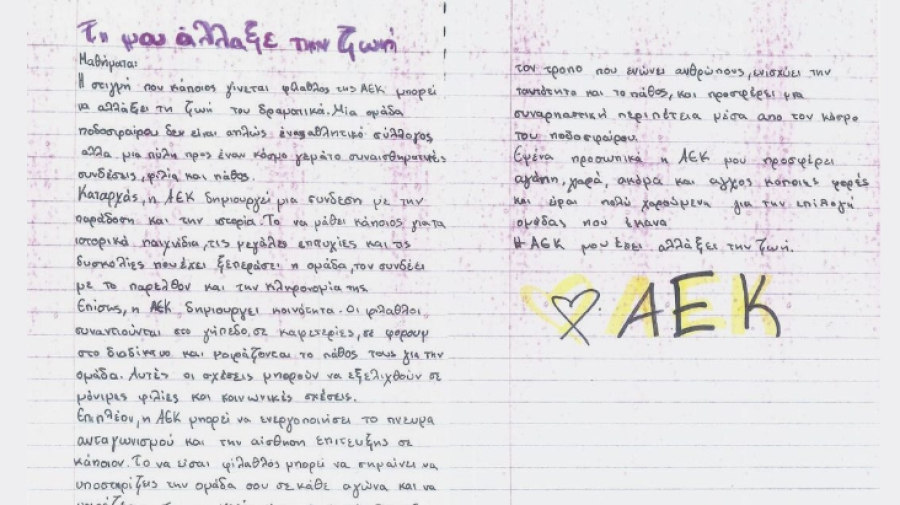 Τι μου άλλαξε την ζωή
Μαθήματα:
Η στιγμή που κάποιος γίνεται φίλαθλος της ΑΕΚ μπορεί
να αλλάξει τη ζωή του δραματικά. Μία ομάδα
ποδοσφαίρου δεν είναι απλώς ένας αθλητικό σύλλογος
αλλα μια πύλη προς έναν κόσμο γεμάτο συναισθηματικές
συνδέσεις, φιλία και πάθος.
Καταρχάς, η ΑΕΚ δημιουργεί μια συνδεση με την
παράδοση και την ιστορία. Το να μάθει κάποιος για τα
ιστορικά παιχνίδια, τις μεγάλες επιτυχίες και τις
δυσκολίες που έχει ξεπεράσει η ομάδα, τον συνδέει
με το παρελθόν και την κληρονομία της.
Επίσης, η ΑΕΚ δημιουργει κοινότητα. Οι φίλαθλοι
συναντιούνται στο γήπεδο, σε καφετερίες, σε φορουμ
στο διαδίκτυο και μοιράζονται το πάθος τους για την
ομάδα. Αυτές οι σχέσεις μπορούν να εξελιχθούν σε
μόνιμες φιλίες και κοινωνικές σχέσεις.
Επιπλέον, η ΑΕΚ μπορεί να ενεργοποιήσει το πνευμα
ανταγωνισμού και την αίσθηση επιτευξης σε
κάποιον. Το να είσαι φίλαθλός μπορεί να σημαίνει να
υποστηρίζεις την ομάδα σου σε κάθε αγώνα και να
τον τροπο που ενώνει ανθρώπους, ενισχύει την
ταυτότητα και το πάθος, και προσφέρει μια
συναρπαστική περιπέτεια μέσα απο τον κόσμο
του ποδοσφαίρου.
Εμένα προσωπικά η ΑΕΚ μου προσφέρει
αγάπη, χαρά, ακόμα και αγχος κάποιες φορές
και είμαι πολύ χαρούμενη για την επιλογή
ομάδας που έκανα
Η ΑΕΚ μου έχει αλλάξει την ζωή.
ΑΕΚ